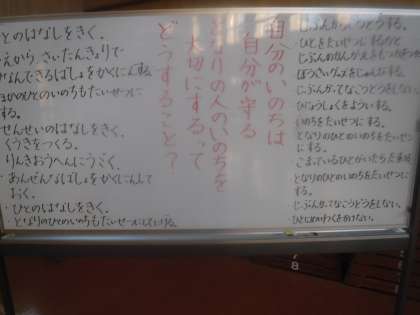 じぶんがこうどうする。
ひとをたいせつにするかど
ぼうさいグッズをじゅんびする。
じぶんかってなこうどうをしない。
ひじょうしょくをよういする。
いのちをたいせつにする。
となりのひとのいのちをたいせつに
する。
こまっているひとがいたらたすける
となりのひとのいのちをたいせつにする。
じぶんかってなこうどうをしない。
ひとにめいわくをかけない。
自分のいのちは
自分が守る
となりの人のいのちを
大切にするって
どうすること?
ひとのはなしをきく。
まえから、さいたんきょりで
ひなんできるばしょをかくにんする。
ほかのひとのいのちもたいせつに
する。
せんせいのはなしをきく。
くうきをつくる。
りんきおうへんにうごく。
・あんぜんなばしょをかくにんして
おく。
・ひとのはなしをきく。
・となりのひとのいのちもたいせつにしてにげる。